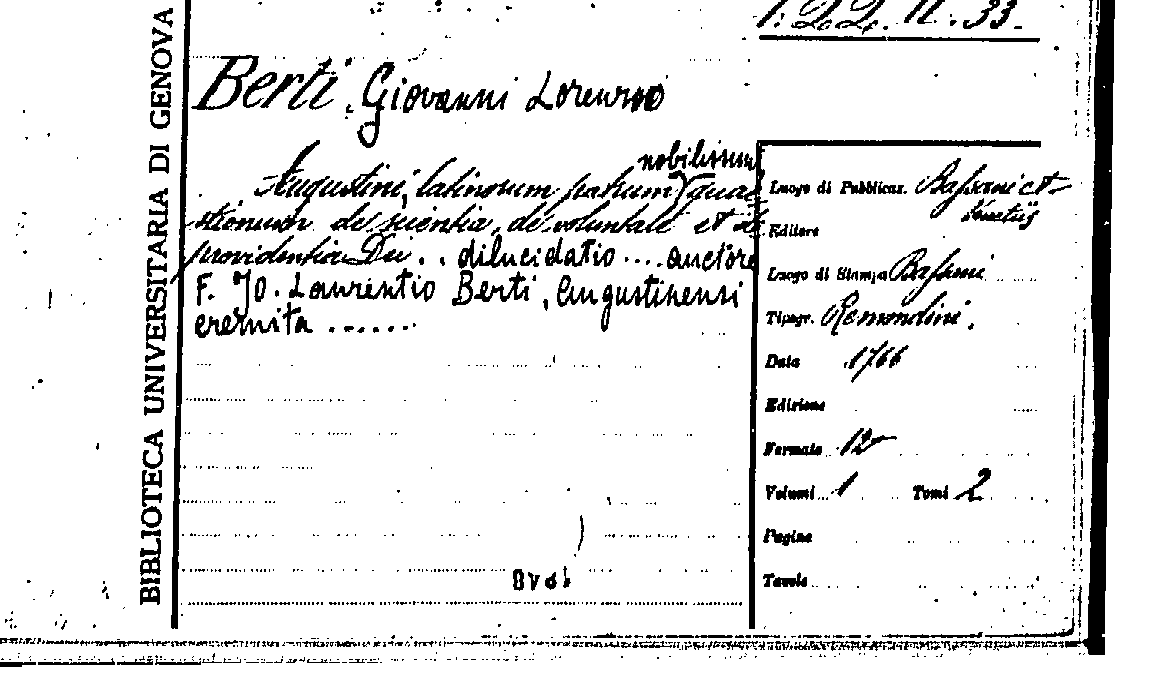 1. 22. II. 33.
BIBLIOTECA UNIVERSITARIA DI GENOVA
Berti, Giovanni Lorenzo
nobilissim
Augustini, latinorum patrum quae
stionum de scientia, de voluntate et de
providentia Dei . . dilucidatio .... auctore
F. Jo. Laurentio Berti, Augustinensi
eremita .......
Luogo di Pubblicaz. Bassani et
Venetiis
Editore
Luogo di Stampa Bassani
Tipogr. Remondini.
Data 1766
Edizione
Formato 12°
Volumi 1 Tomi 2
Pagine
Tavole